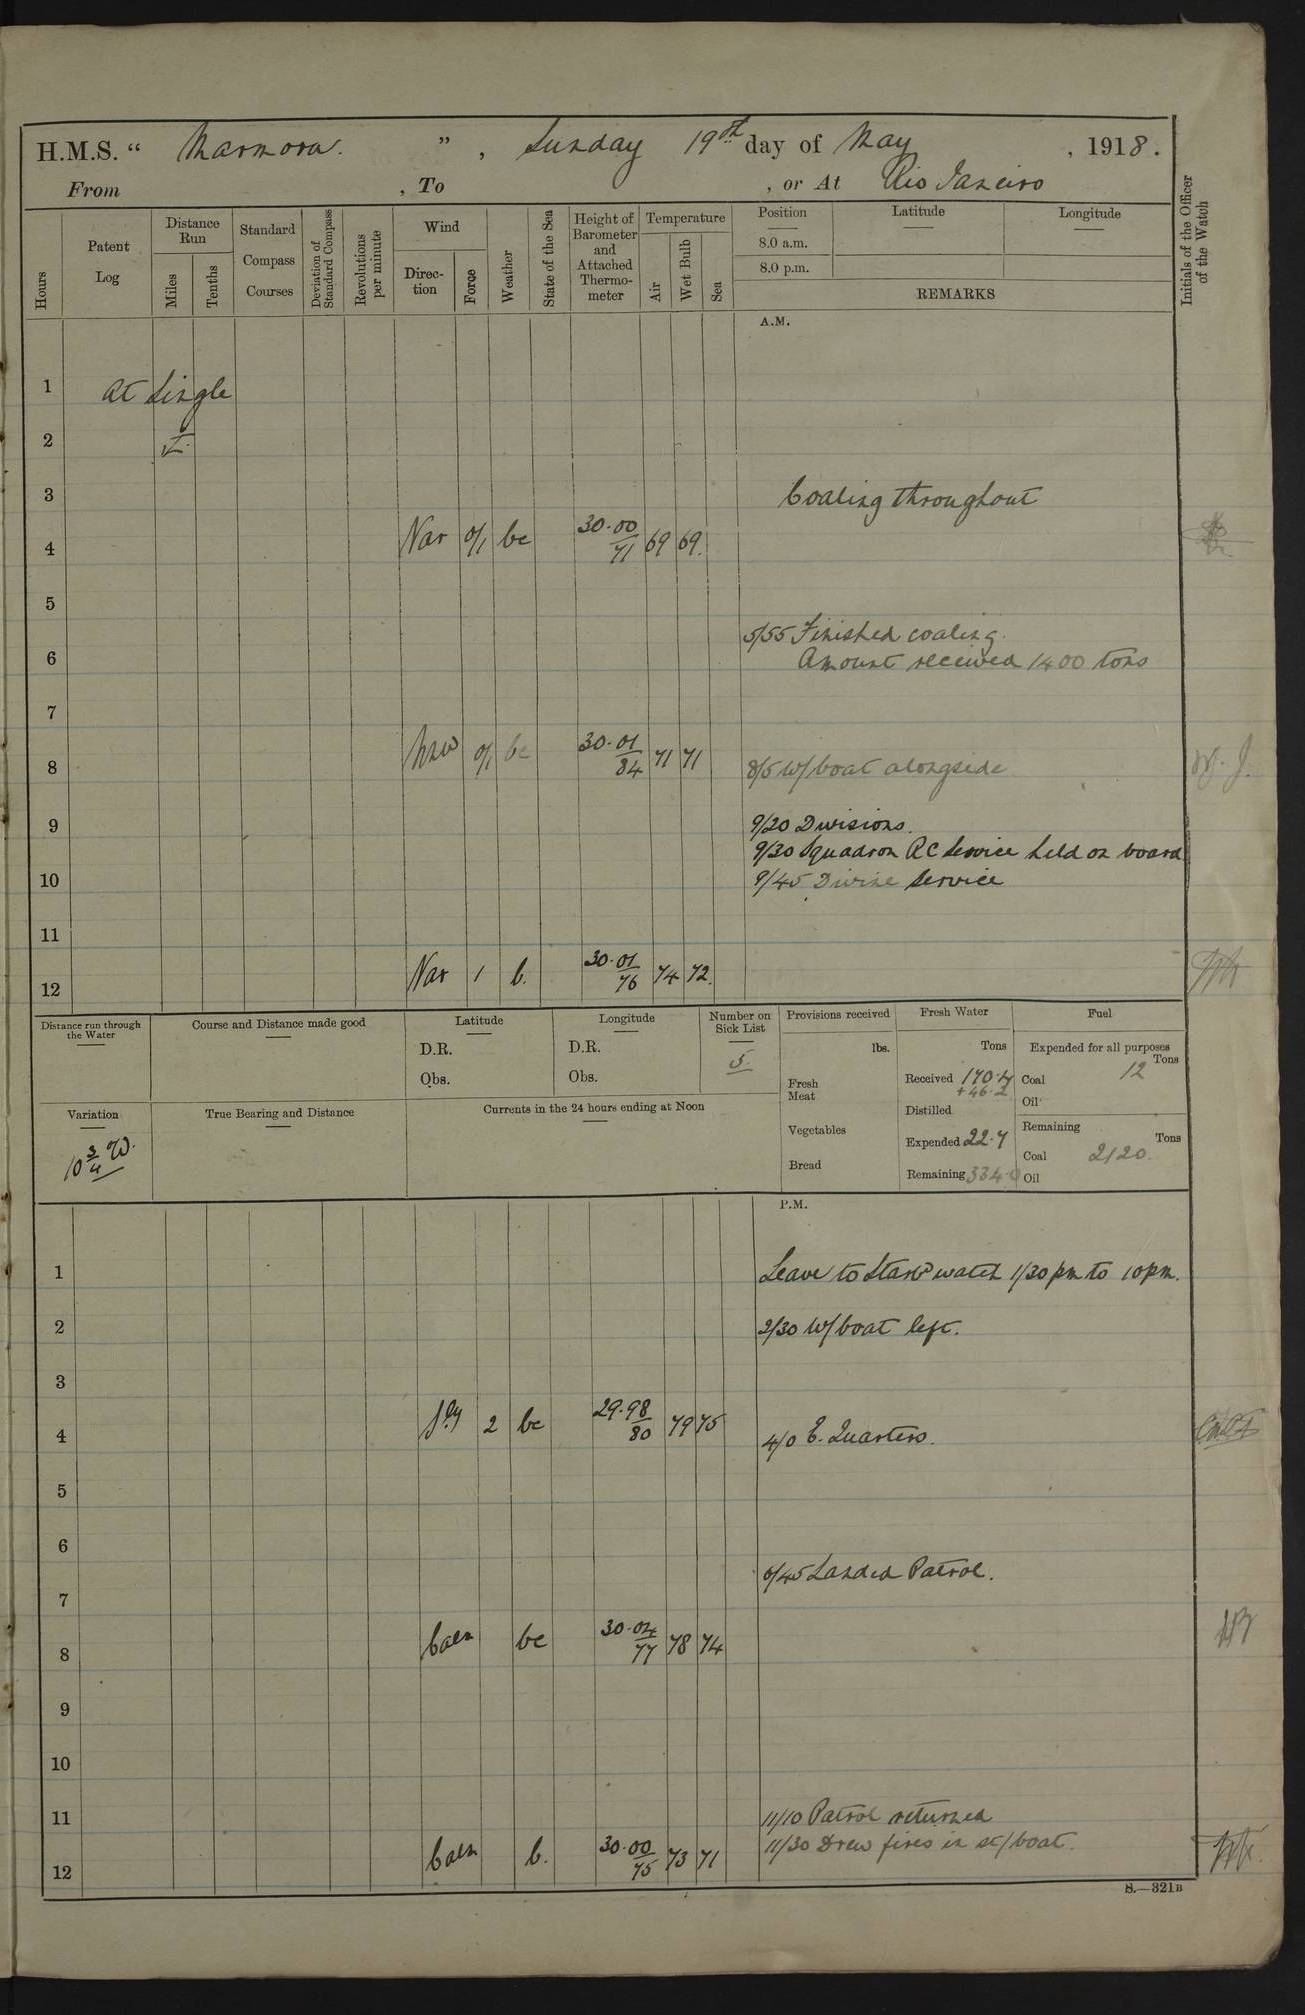 H.M.S. “ Marmora. ” , Sunday 19th day of May , 1918.
From , To , or At Rio Janeiro
Hours
Patent Log
Distance Run
Miles
Tenths
Standard Compass Courses
Deviation of Standard Compass
Revolutions per minute
Wind
Direction
Force
Weather
State of the Sea
Height of Barometer and Attached Thermometer
Temperature
Air
Wet Bulb
Sea
Position
8.0 a.m.
8.0 p.m.
Latitude
Longitude
REMARKS
Initials of the Officer of the Watch
A.M.
1 At Single
2
3 Coaling throughout
4 Var 0/1 bc 30.00 71 69 69.
5
5/55 Finished coaling.
6 Amount received 1400 tons
7
8 NNW 0/1 bc 30.01 84 71 71 8/5 W/boat alongside W.J.
9 9/20 Divisions.
9/30 Squadron RC Service held on board
10 9/45 Divine Service
11
12 Var 1 b. 30.01 76 74 72.
Distance run through the Water
Course and Distance made good
Latitude
D.R.
Obs.
Longitude
D.R.
Obs.
Number on Sick List
5.
Provisions received
lbs.
Fresh Meat
Vegetables
Bread
Fresh Water
Tons
Received 170.4
+46.2
Distilled
Expended 22.7
Remaining 334.0
Fuel
Expended for all purposes
Tons
Coal 12
Oil
Remaining
Tons
Coal 2120.
Oil
Variation
10 3/4 W.
True Bearing and Distance
Currents in the 24 hours ending at Noon
P.M.
1 Leave to Starbd watch 1/30 pm to 10 pm.
2 2/30 W/boat left.
3
4 S'ly 2 bc 29.98 80 79 75 4/0 E. Quarters.
5
6
6/45 Landed Patrol.
7
8 Calm bc 30.04 77 78 74
9
10
11 11/10 Patrol returned
11/30 Drew fires in st/boat.
12 Calm b. 30.00 75 73 71
S.—321B